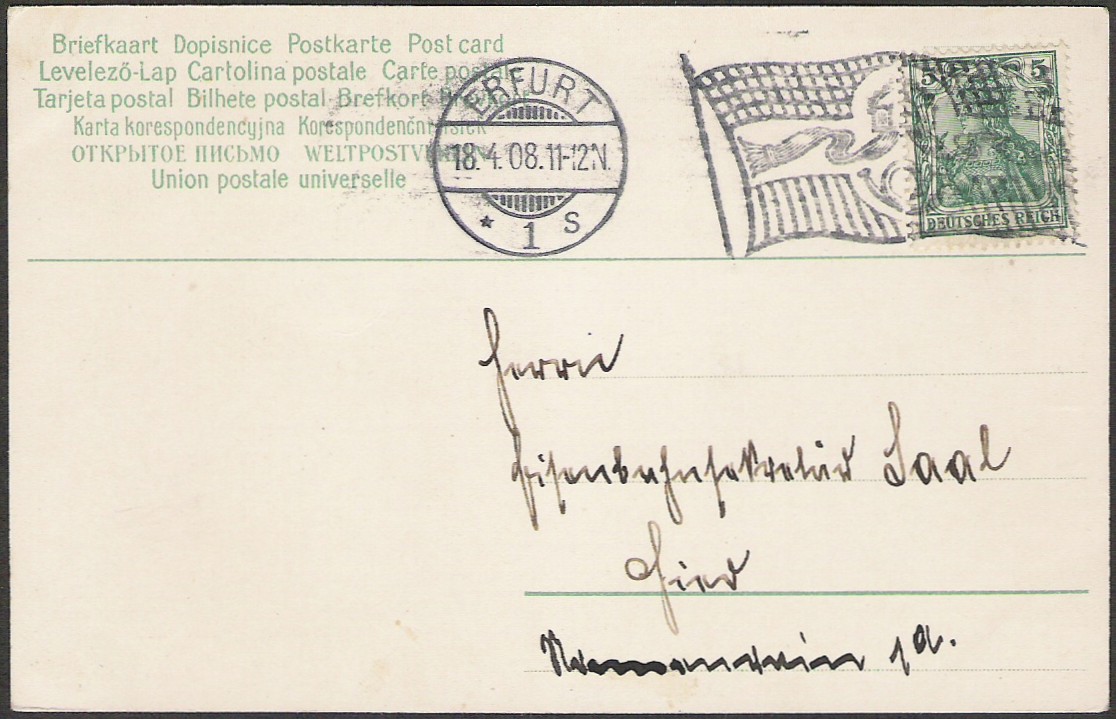 Briefkaart Dopisnice Postkarte Post card
Levelező-Lap Cartolina postale Carte postale
Tarjeta postal Bilhete postal Brefkort
Karta korespondencyjna Korespondenční lístek
ОТКРЫТОЕ ПИСЬМО WELTPOSTVEREIN
Union postale universelle
ERFURT
18.4.08.11-12N.
* 1 S
5 5
DEUTSCHES REICH
Herrn
Eisenbahnsekretär Saal
Hier
1a.